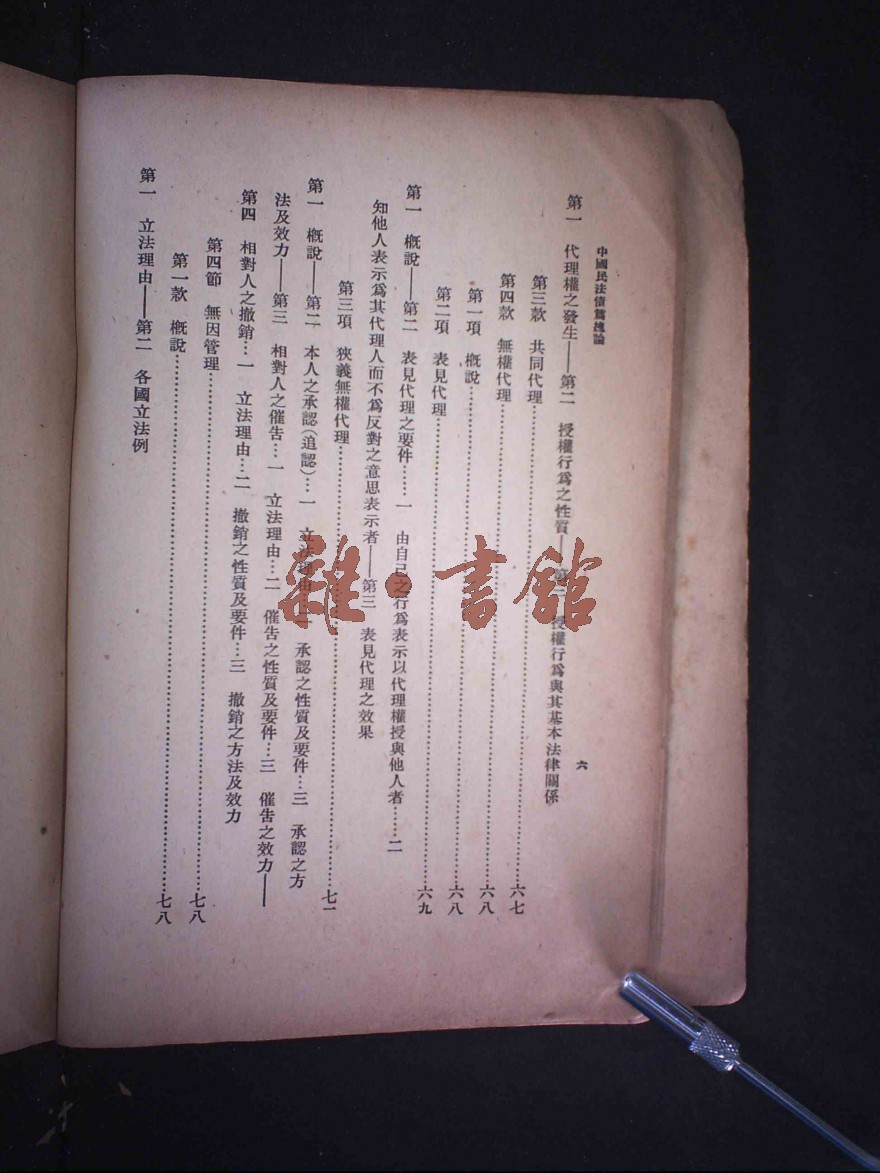 中國民法債篇總論
六
第一 代理權之發生——第二 授權行爲之性質——第三 授權行爲與其基本法律關係
第三款 共同代理……………………六七
第四款 無權代理……………………六八
第一項 概說……………………六八
第二項 表見代理……………………六九
第一 概說——第二 表見代理之要件……一 由自己之行爲表示以代理權授與他人者……二
知他人表示爲其代理人而不爲反對之意思表示者——第三 表見代理之效果
第三項 狹義無權代理……………………七一
第一 概說——第二 本人之承認(追認)…一 立法理由…二 承認之性質及要件…三 承認之方
法及效力——第三 相對人之催告…一 立法理由…二 催告之性質及要件…三 催告之效力——
第四 相對人之撤銷…一 立法理由…二 撤銷之性質及要件…三 撤銷之方法及效力
第四節 無因管理……………………七八
第一款 概說……………………七八
第一 立法理由——第二 各國立法例
雜·書館